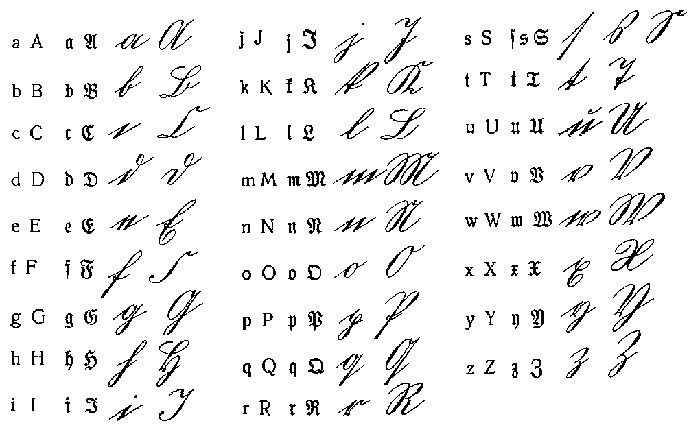 a A a A a A
b B b B b B
c C c C c C
d D d D d D
e E e E e E
f F f F f F
g G g G g G
h H h H h H
i I i I i I
j J j J j J
k K k K k K
l L l L l L
m M m M m M
n N n N n N
o O o O o O
p P p P p P
q Q q Q q Q
r R r R r R
s S ſ s S ſ s S
t T t T t T
u U u U u U
v V v V v V
w W w W w W
x X x X x X
y Y y Y y Y
z Z z Z z Z